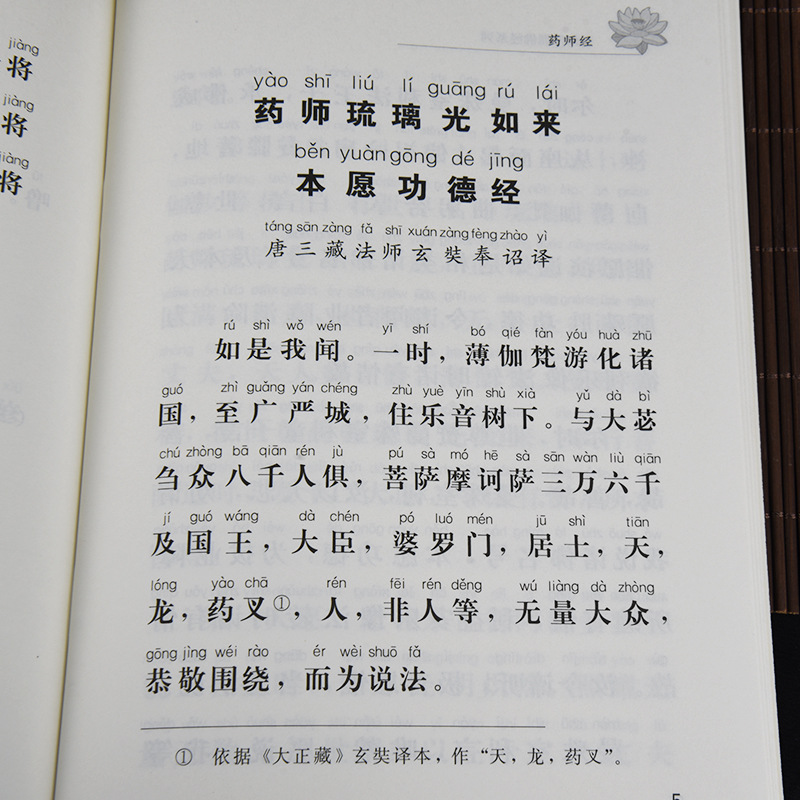 jiàng
将
jiàng
将
jiàng
将
药师经
yào shī liú lí guāng rú lái
药师琉璃光如来
běn yuàn gōng dé jīng
本愿功德经
táng sān zàng fǎ shī xuán zàng fèng zhào yì
唐三藏法师玄奘奉诏译
rú shì wǒ wén yì shí bó qié fàn yóu huà zhū
如是我闻。一时，薄伽梵游化诸
guó zhì guǎng yán chéng zhù yuè yīn shù xià yǔ dà bì
国，至广严城，住乐音树下。与大苾
chú zhòng bā qiān rén jù pú sà mó hē sà sān wàn liù qiān
刍众八千人俱，菩萨摩诃萨三万六千
jí guó wáng dà chén pó luó mén jū shì tiān
及国王，大臣，婆罗门，居士，天，
lóng yào chā rén fēi rén děng wú liàng dà zhòng
龙，药叉①，人，非人等，无量大众，
gōng jìng wéi rào ér wèi shuō fǎ
恭敬围绕，而为说法。
① 依据《大正藏》玄奘译本，作“天，龙，药叉”。
5